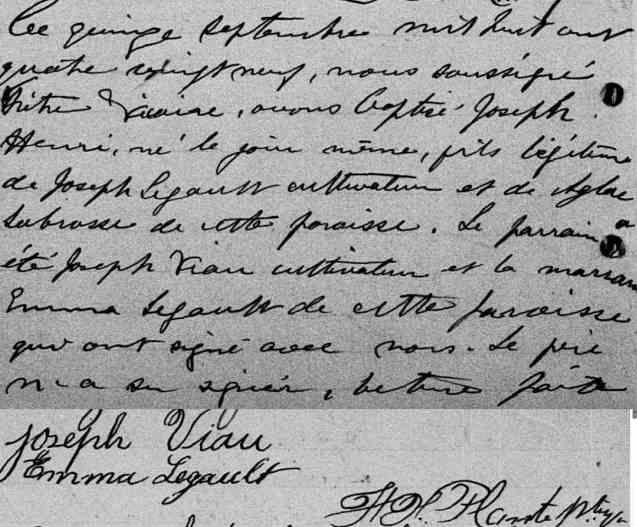 Ce quinze septembre mil huit cent
quatre vingt neuf, nous soussigné
Prêtre Vicaire, avons baptisé Joseph
Henri, né le jour même, fils légitime
de Joseph Legault cultivateur et de Aglae
Labrosse de cette paroisse. Le parrain a
été Joseph Viau cultivateur et la marraine
Emma Legault de cette paroisse
qui ont signé avec nous. Le père
n'a su signer, lecture faite
Joseph Viau
Emma Legault